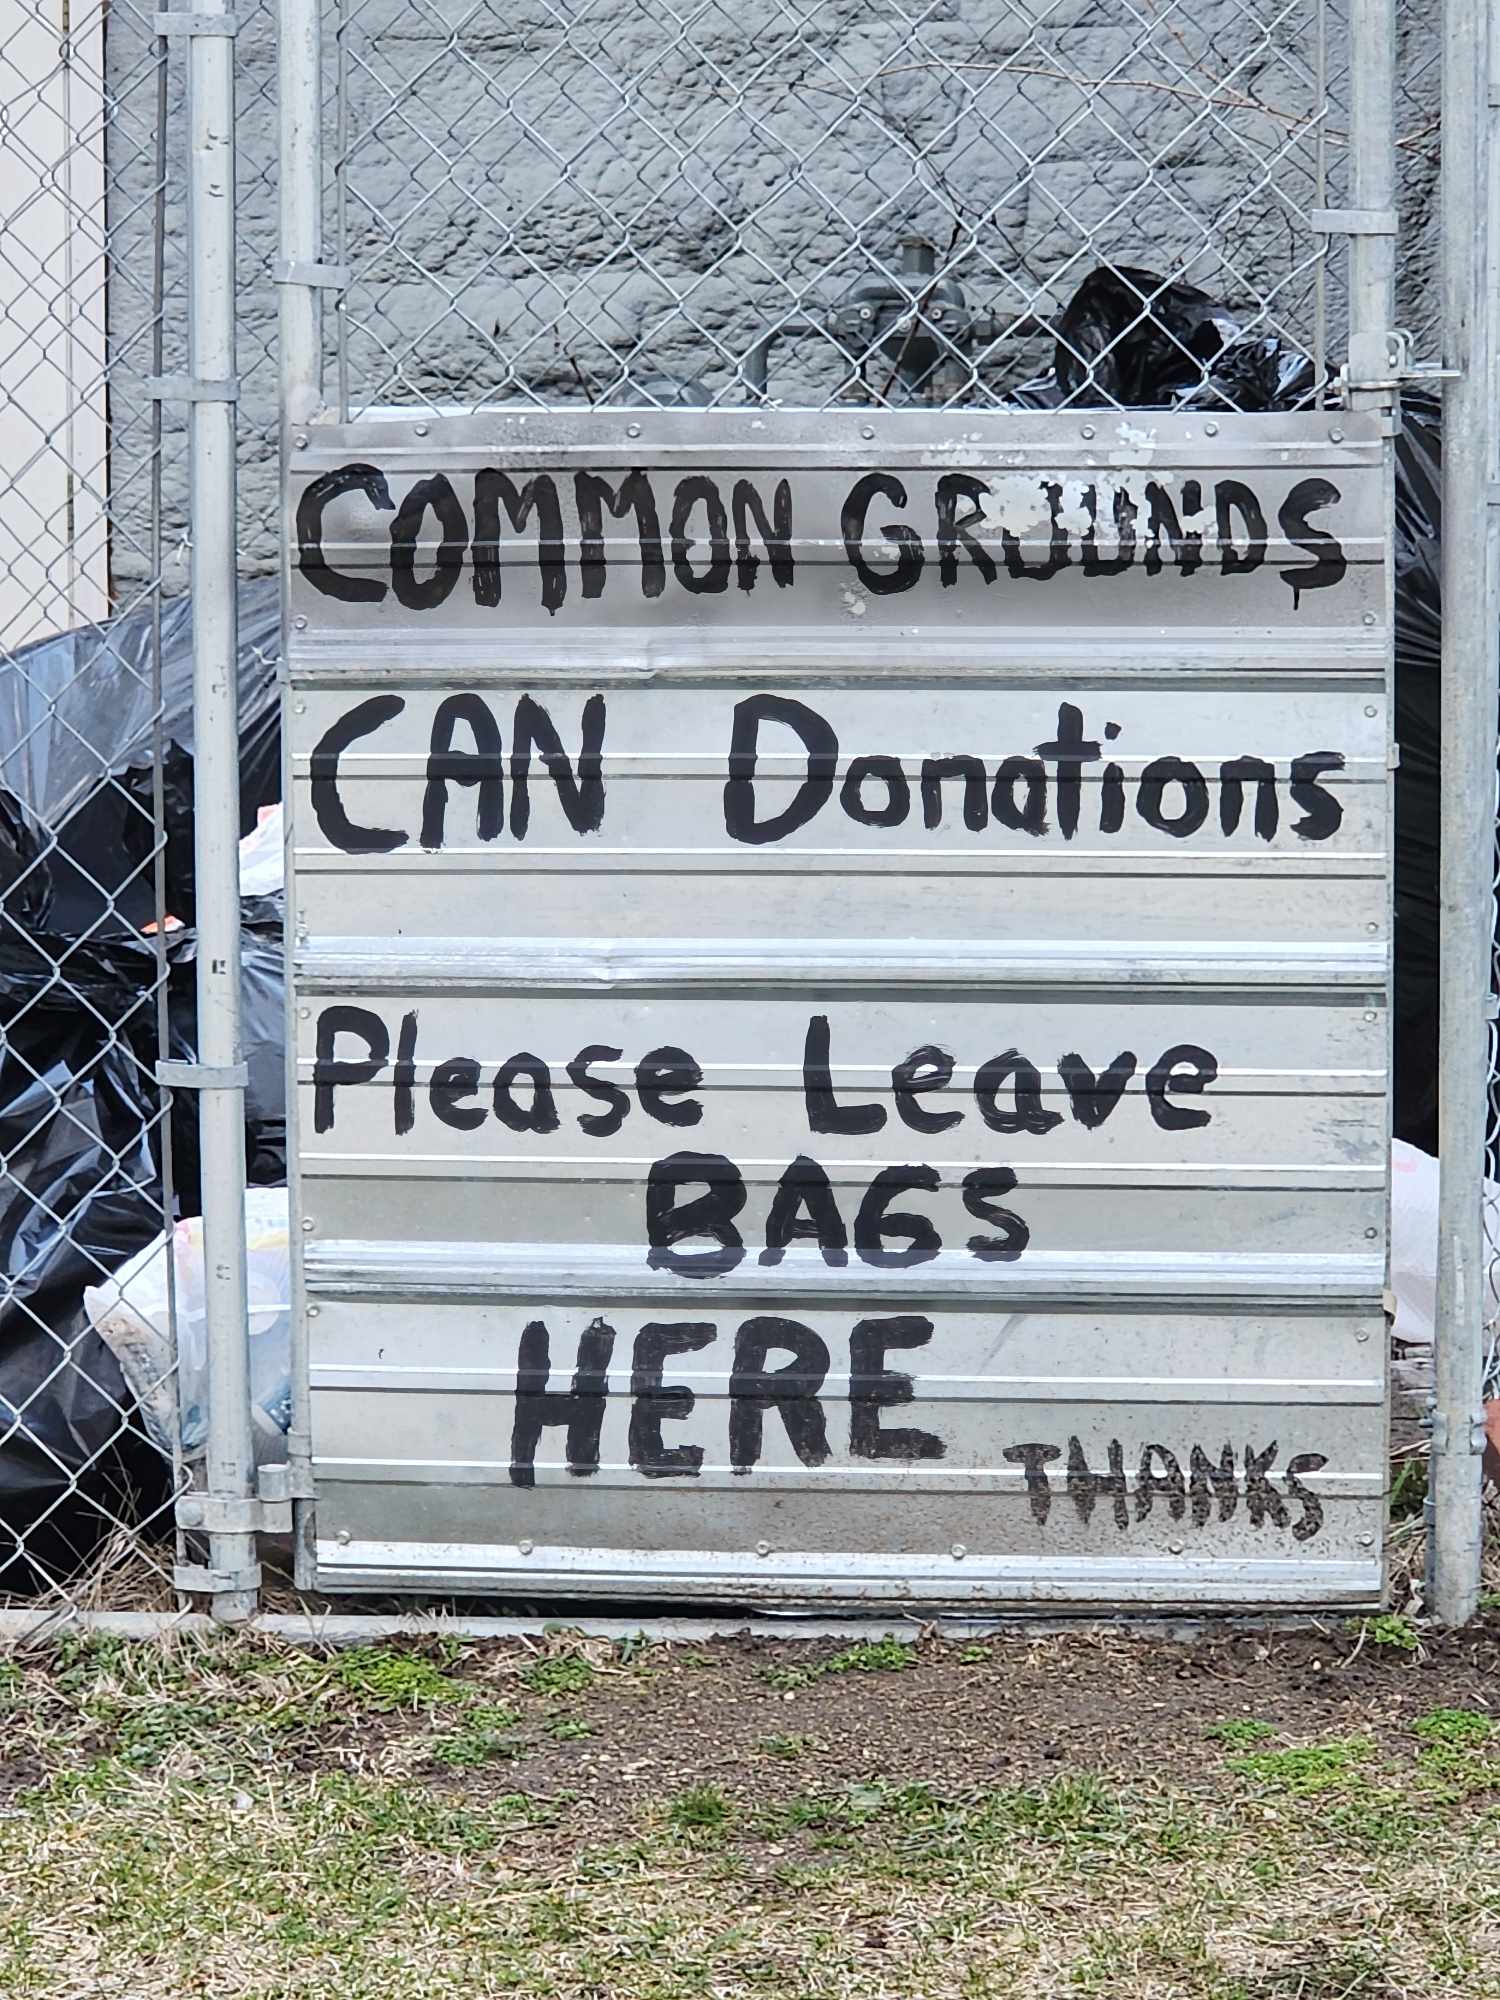 COMMON GROUNDS
CAN Donations
Please Leave
BAGS
HERE
THANKS